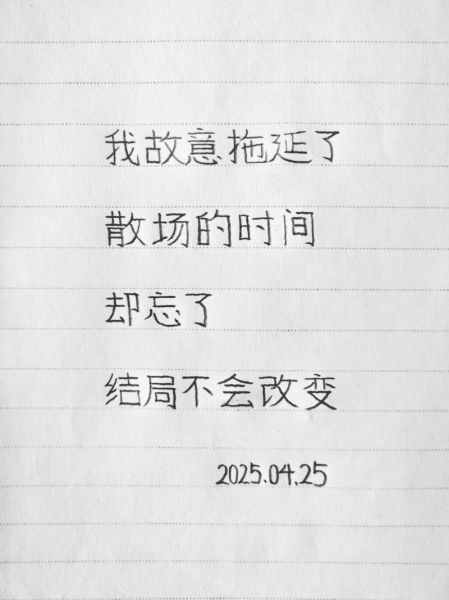 我故意拖延了
散场的时间
却忘了
结局不会改变
2025.04.25